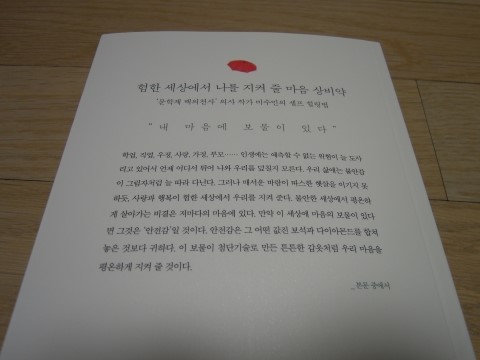 험한 세상에서 나를 지켜 줄 마음 상비약
'문학계 백의천사' 의사 작가 이수민의 셀프 힐링법
“ 내 마음에 보물이 있다 ”
학업, 직업, 우정, 사랑, 가정, 부모…… 인생에는 예측할 수 없는 위험이 늘 도사
리고 있어서 언제 어디서 튀어 나와 우리를 덮칠지 모른다. 우리 삶에는 불안감
이 그림자처럼 늘 따라 다닌다. 그러나 매서운 바람이 따스한 햇살을 이기지 못
하듯, 사랑과 행복이 험한 세상에서 우리를 지켜 준다. 불안한 세상에서 평온하
게 살아가는 비결은 저마다의 마음에 있다. 만약 이 세상에 마음의 보물이 있다
면 그것은 '안전감'일 것이다. 안전감은 그 어떤 값진 보석과 다이아몬드를 합쳐
놓은 것보다 귀하다. 이 보물이 첨단기술로 만든 튼튼한 갑옷처럼 우리 마음을
평온하게 지켜 줄 것이다.
_ 본문 중에서